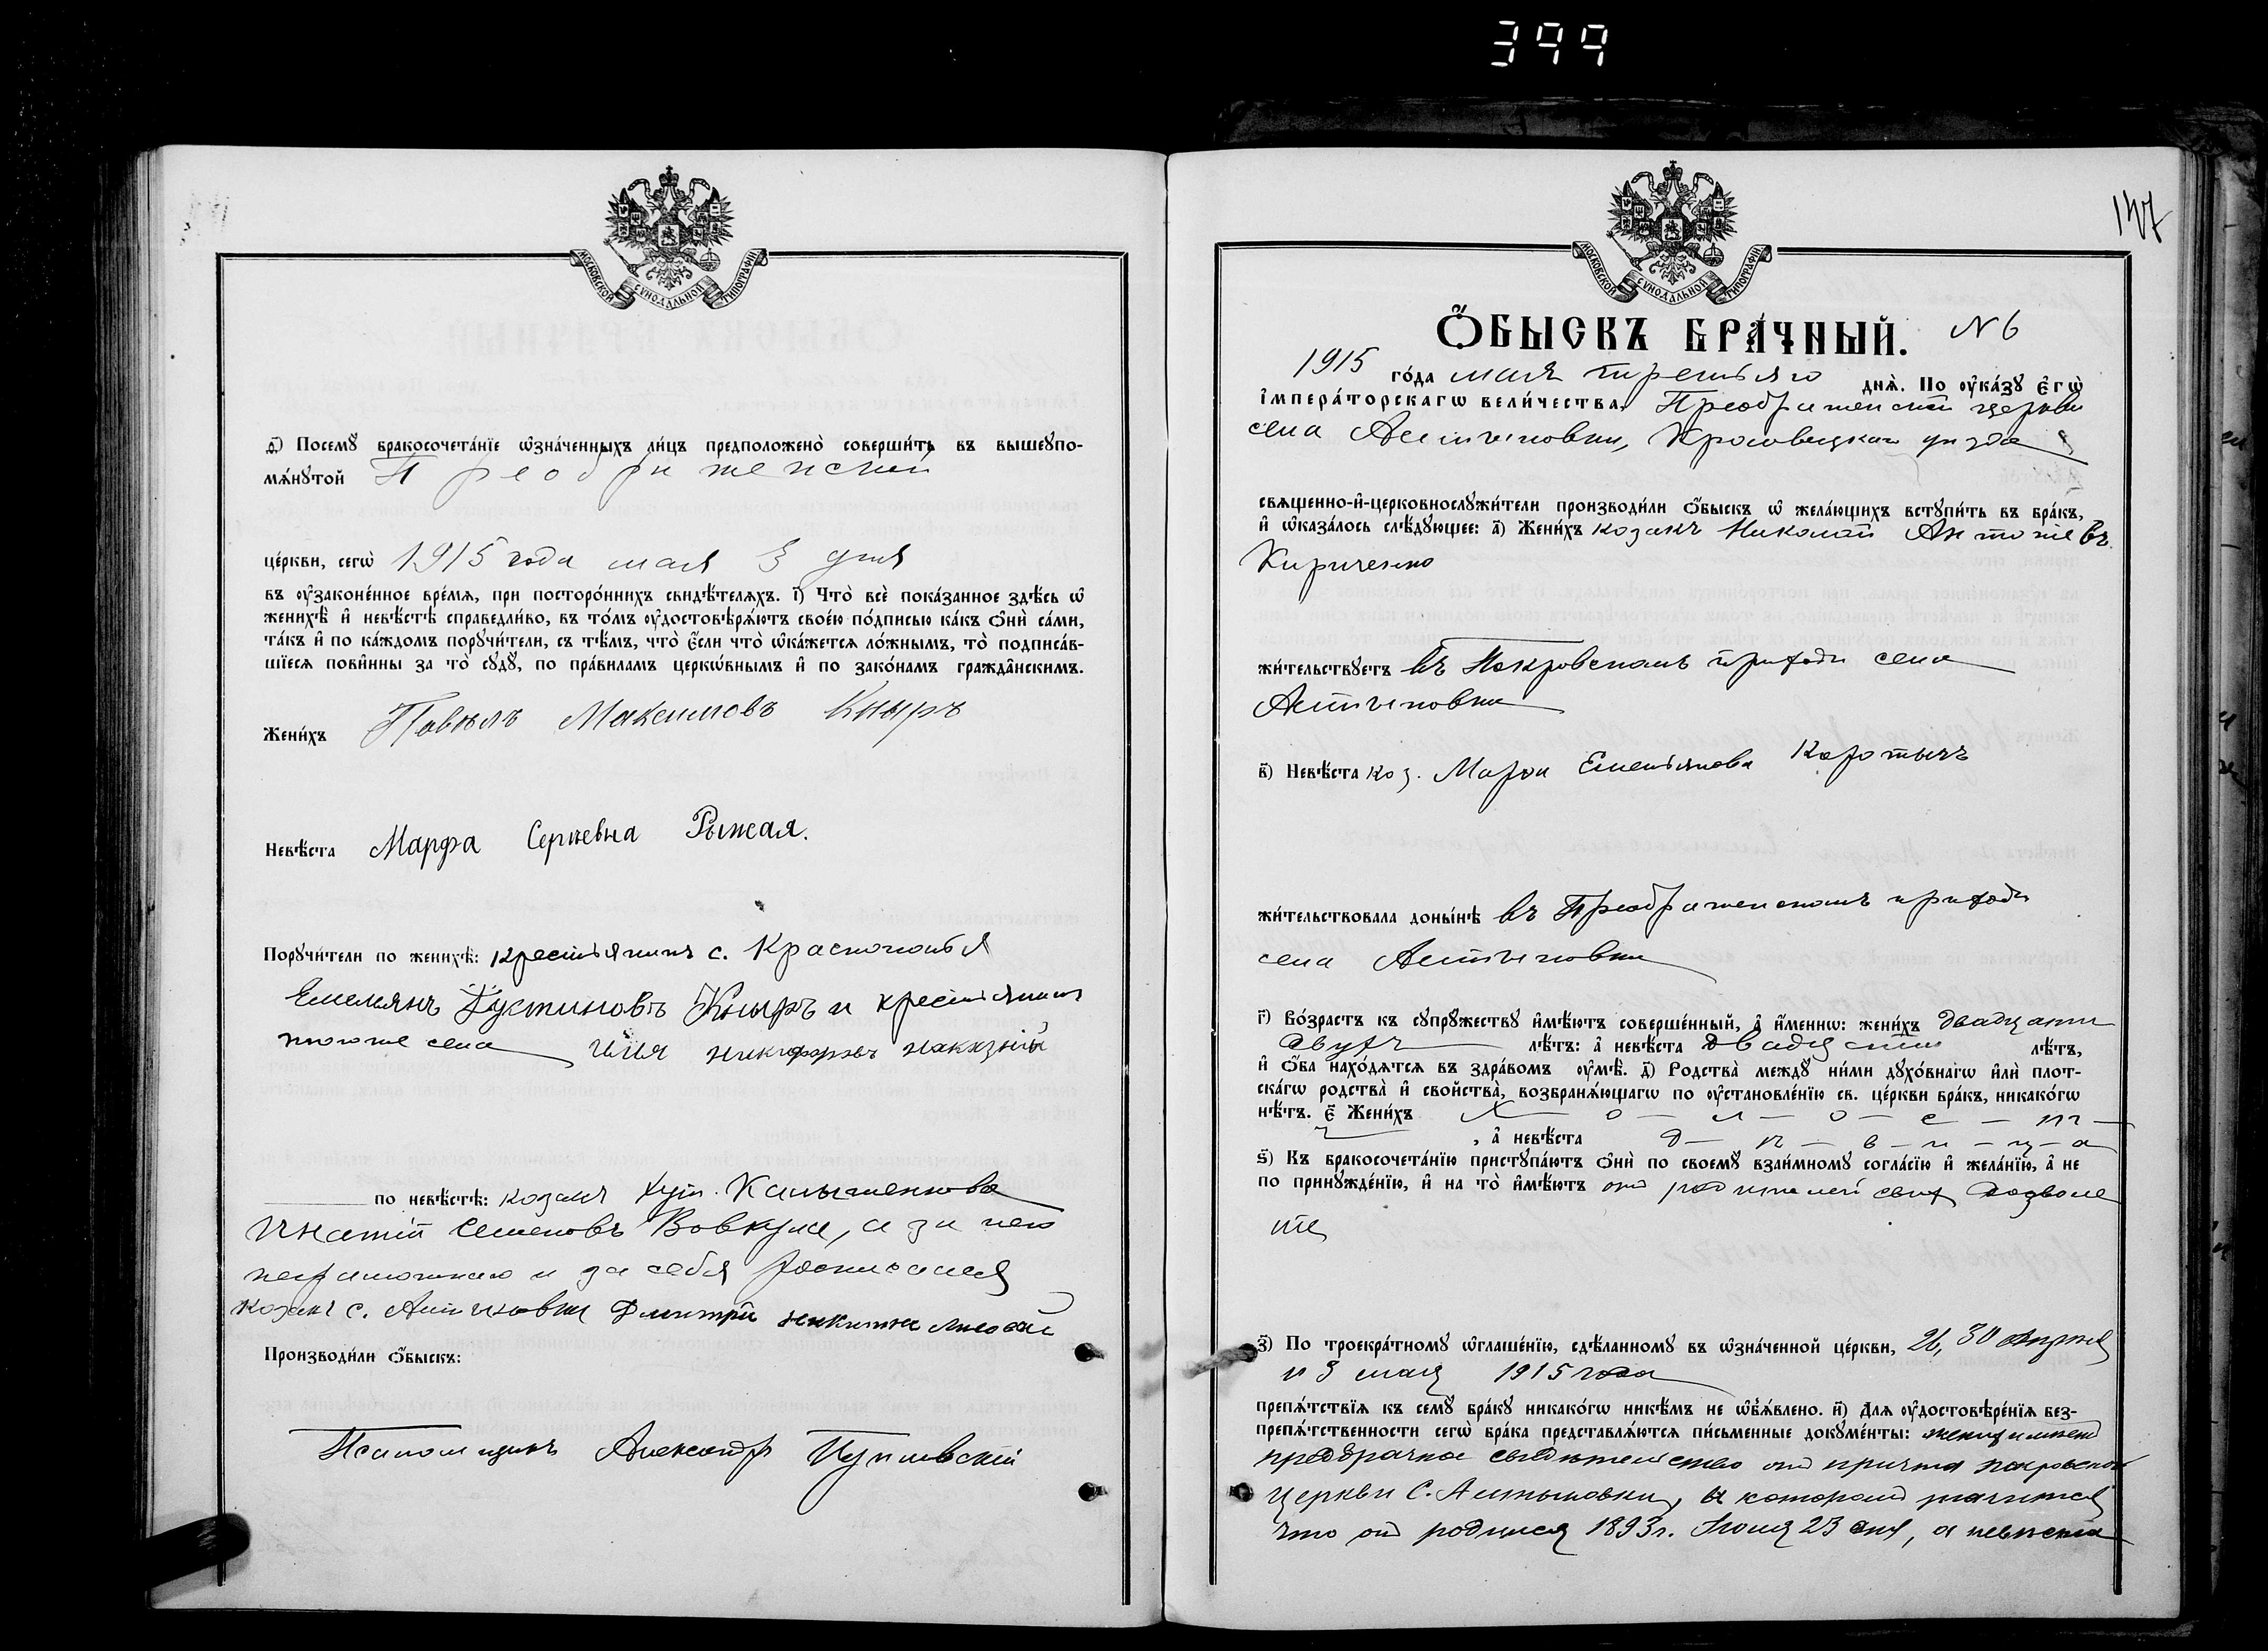 399
МОСКОВСКОЙ СѴНОДАЛЬНОЙ ТИПОГРАФІИ
ѳ҃) Посемꙋ̀ бракосочета́нїе ѡ҆зна́ченныхъ ли́цъ предположено̀ соверши́ть въ вышеꙋпо-
мѧ́нꙋтой Преображенской
це́ркви, сегѡ̀ 1915 года мая 3 дня
въ ᲂу҆законе́нное вре́мѧ, при посторо́ннихъ свидѣ́телѧхъ. і҃) Что̀ всѐ пока́занное здѣ́сь ѡ҆
женихѣ̀ и҆ невѣ́стѣ справедли́во, въ то́мъ ᲂу҆достовѣрѧ́ютъ свое́ю по́дписью ка́къ ѻ҆нѝ са́ми,
та́къ и҆ по ка́ждомъ порꙋчи́тели, съ тѣ́мъ, что̀ є҆́сли что̀ ѡ҆ка́жетсѧ ло́жнымъ, то̀ подписа́в-
шїесѧ пови́нны за то̀ сꙋдꙋ̀, по пра́виламъ церкѡ́внымъ и҆ по зако́намъ гражда̑нскимъ.
Жени́хъ Павелъ Максимовъ Кнырь
Невѣ́ста Марфа Сергѣевна Рыжая.
Порꙋчи́тели по женихѣ̀: крестьянинъ с. Краснополья
Емельянъ Устиновъ Кнырь и крестьянинъ
того же села Илія Никифоровъ
по невѣ́стѣ: козакъ хут.
Игнатій Семеновъ Вовкула, а за него
неграмотнаго и за себя росписался
козакъ с. Дмитрій Никитинъ
Производи́ли ѻ҆́быскъ:
Псаломщикъ Александръ
147
МОСКОВСКОЙ СѴНОДАЛЬНОЙ ТИПОГРАФІИ
Ѻ҆́БЫСКЪ БРА́ЧНЫЙ. N 6
1915 го́да мая третьяго днѧ̀. По ᲂу҆ка́зꙋ є҆гѡ̀
і҆мпера́торскагѡ вели́чества, Преображенской церкви
села уѣзда
свѧщенно-и҆-церковнослꙋжи́тели производи́ли ѻ҆́быскъ ѡ҆ жела́ющихъ встꙋпи́ть въ бра́къ,
и҆ ѡ҆каза́лось слѣ́дꙋющее: а҃) Жени́хъ козакъ Николай Антоніевъ
Кириченко
жи́тельствꙋетъ въ Покровскомъ приходѣ села
в҃) Невѣ́ста коз. Марфа Емельянова Коротычъ
жи́тельствовала доны́нѣ въ Преображенскомъ приходѣ
села
г҃) Во́зрастъ къ сꙋпрꙋ́жествꙋ и҆мѣ́ютъ соверше́нный, а҆ и҆́меннѡ: жени́хъ двадцати
двухъ лѣ́тъ: а҆ невѣ́ста двадцати лѣ́тъ,
и҆ ѻ҆́ба нахо́дѧтсѧ въ здра́вомъ ᲂу҆мѣ̀. д҃) Родства̀ междꙋ̀ ни́ми дꙋхо́внагѡ и҆лѝ плот-
ска́гѡ родства̀ и҆ сво́йства̀, возбранѧ́ющагѡ по ᲂу҆становле́нїю св. це́ркви бра́къ, никако́гѡ
нѣ́тъ. є҃ Жени́хъ Х — о — л — о — с — т —
ъ, а҆ невѣ́ста д — ѣ — в — и — ц — а
ѕ҃) Къ бракосочета́нїю пристꙋпа́ютъ ѻ҆нѝ по своемꙋ̀ взаи́мномꙋ согла́сїю и҆ жела́нїю, а҆ не
по принꙋжде́нїю, и҆ на то̀ и҆мѣ́ютъ отъ родителей своихъ дозволе
ніе
з҃) По троекра́тномꙋ ѡ҆глаше́нїю, сдѣ́ланномꙋ въ ѡ҆зна́ченной це́ркви, 26, 30 апрѣля
и 3 мая 1915 года
препѧ́тствїѧ къ семꙋ̀ бра́кꙋ никако́гѡ никѣ́мъ не ѡ҆бъѧ́влено. и҃) Длѧ ᲂу҆достовѣре́нїѧ без-
препѧ́тственности сегѡ̀ бра́ка представлѧ́ютсѧ пи́сьменные докꙋме́нты: женихъ имѣетъ
предбрачное свидѣтельство отъ причта Покровской
церкви с. въ которомъ значится
что онъ родился 1893 г. 23 дня, а невѣста